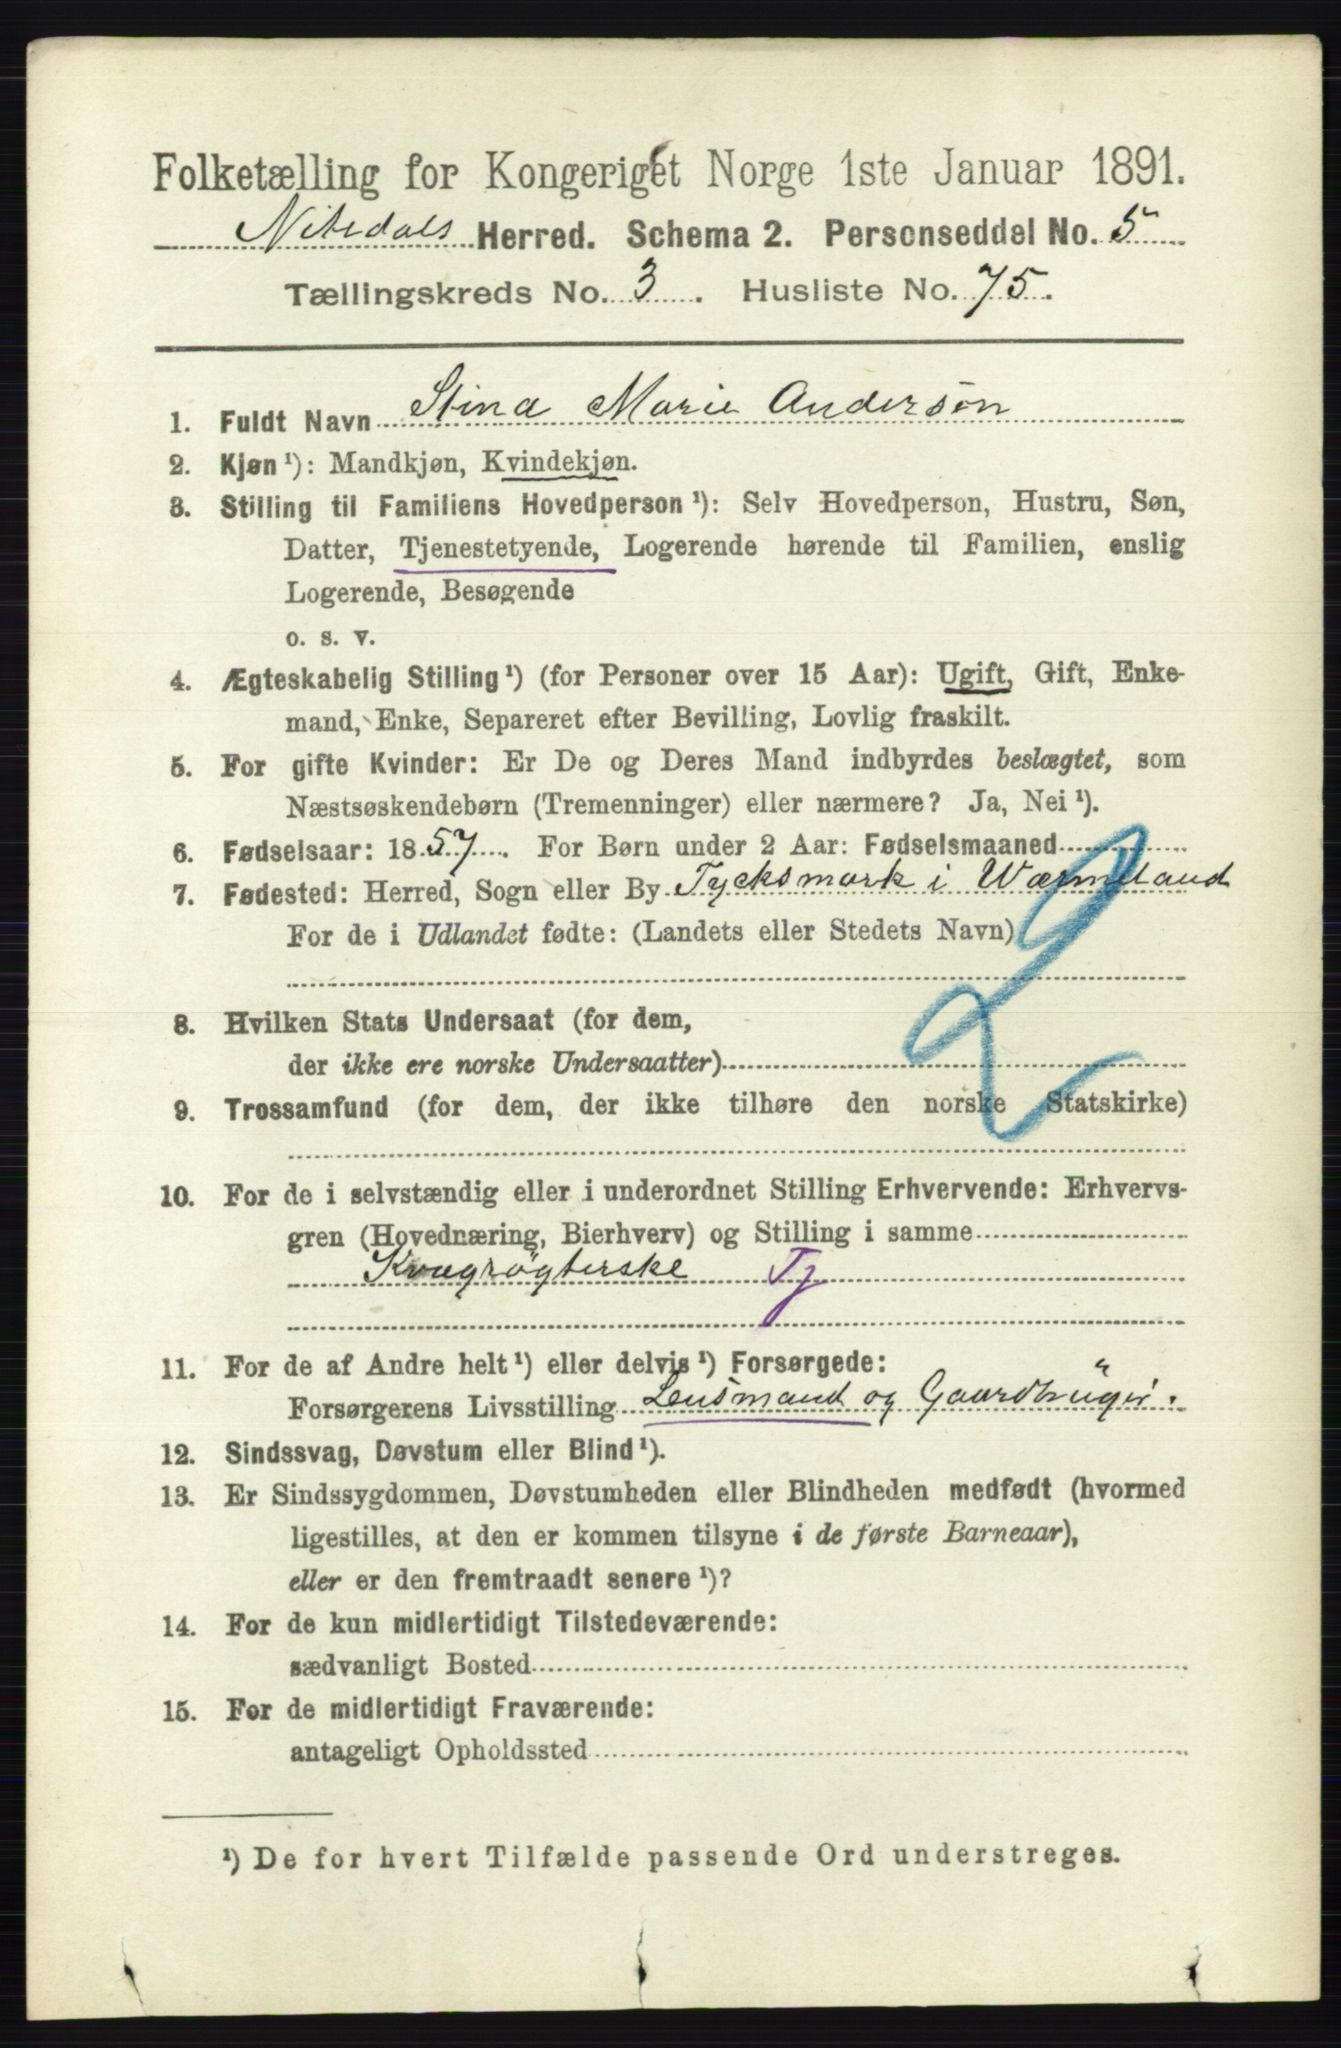 Folketælling for Kongeriget Norge 1ste Januar 1891.
Nitedals Herred. Schema 2. Personseddel No. 5
Tællingskreds No. 3. Husliste No. 75.
1. Fuldt Navn Stina Marie Anderson
2. Kjøn ¹): Mandkjøn, Kvindekjøn.
3. Stilling til Familiens Hovedperson ¹): Selv Hovedperson, Hustru, Søn,
Datter, Tjenestetyende, Logerende hørende til Familien, enslig
Logerende, Besøgende
o. s. v.
4. Ægteskabelig Stilling ¹) (for Personer over 15 Aar): Ugift, Gift, Enke-
mand, Enke, Separeret efter Bevilling, Lovlig fraskilt.
5. For gifte Kvinder: Er De og Deres Mand indbyrdes beslægtet, som
Næstsøskendebørn (Tremenninger) eller nærmere? Ja, Nei ¹).
6. Fødselsaar: 1857. For Børn under 2 Aar: Fødselsmaaned
7. Fødested: Herred, Sogn eller By Tycksmark i Wærmeland
For de i Udlandet fødte: (Landets eller Stedets Navn)
8. Hvilken Stats Undersaat (for dem,
der ikke ere norske Undersaatter)
9. Trossamfund (for dem, der ikke tilhøre den norske Statskirke)
10. For de i selvstændig eller i underordnet Stilling Erhvervende: Erhvervs-
gren (Hovednæring, Bierhverv) og Stilling i samme
Kvægrögterske Tj
11. For de af Andre helt ¹) eller delvis ¹) Forsørgede:
Forsørgerens Livsstilling Lensmand og Gaardbruger.
12. Sindssvag, Døvstum eller Blind ¹).
13. Er Sindssygdommen, Døvstumheden eller Blindheden medfødt (hvormed
ligestilles, at den er kommen tilsyne i de første Barneaar),
eller er den fremtraadt senere ¹)?
14. For de kun midlertidigt Tilstedeværende:
sædvanligt Bosted
15. For de midlertidigt Fraværende:
antageligt Opholdssted
¹) De for hvert Tilfælde passende Ord understreges.